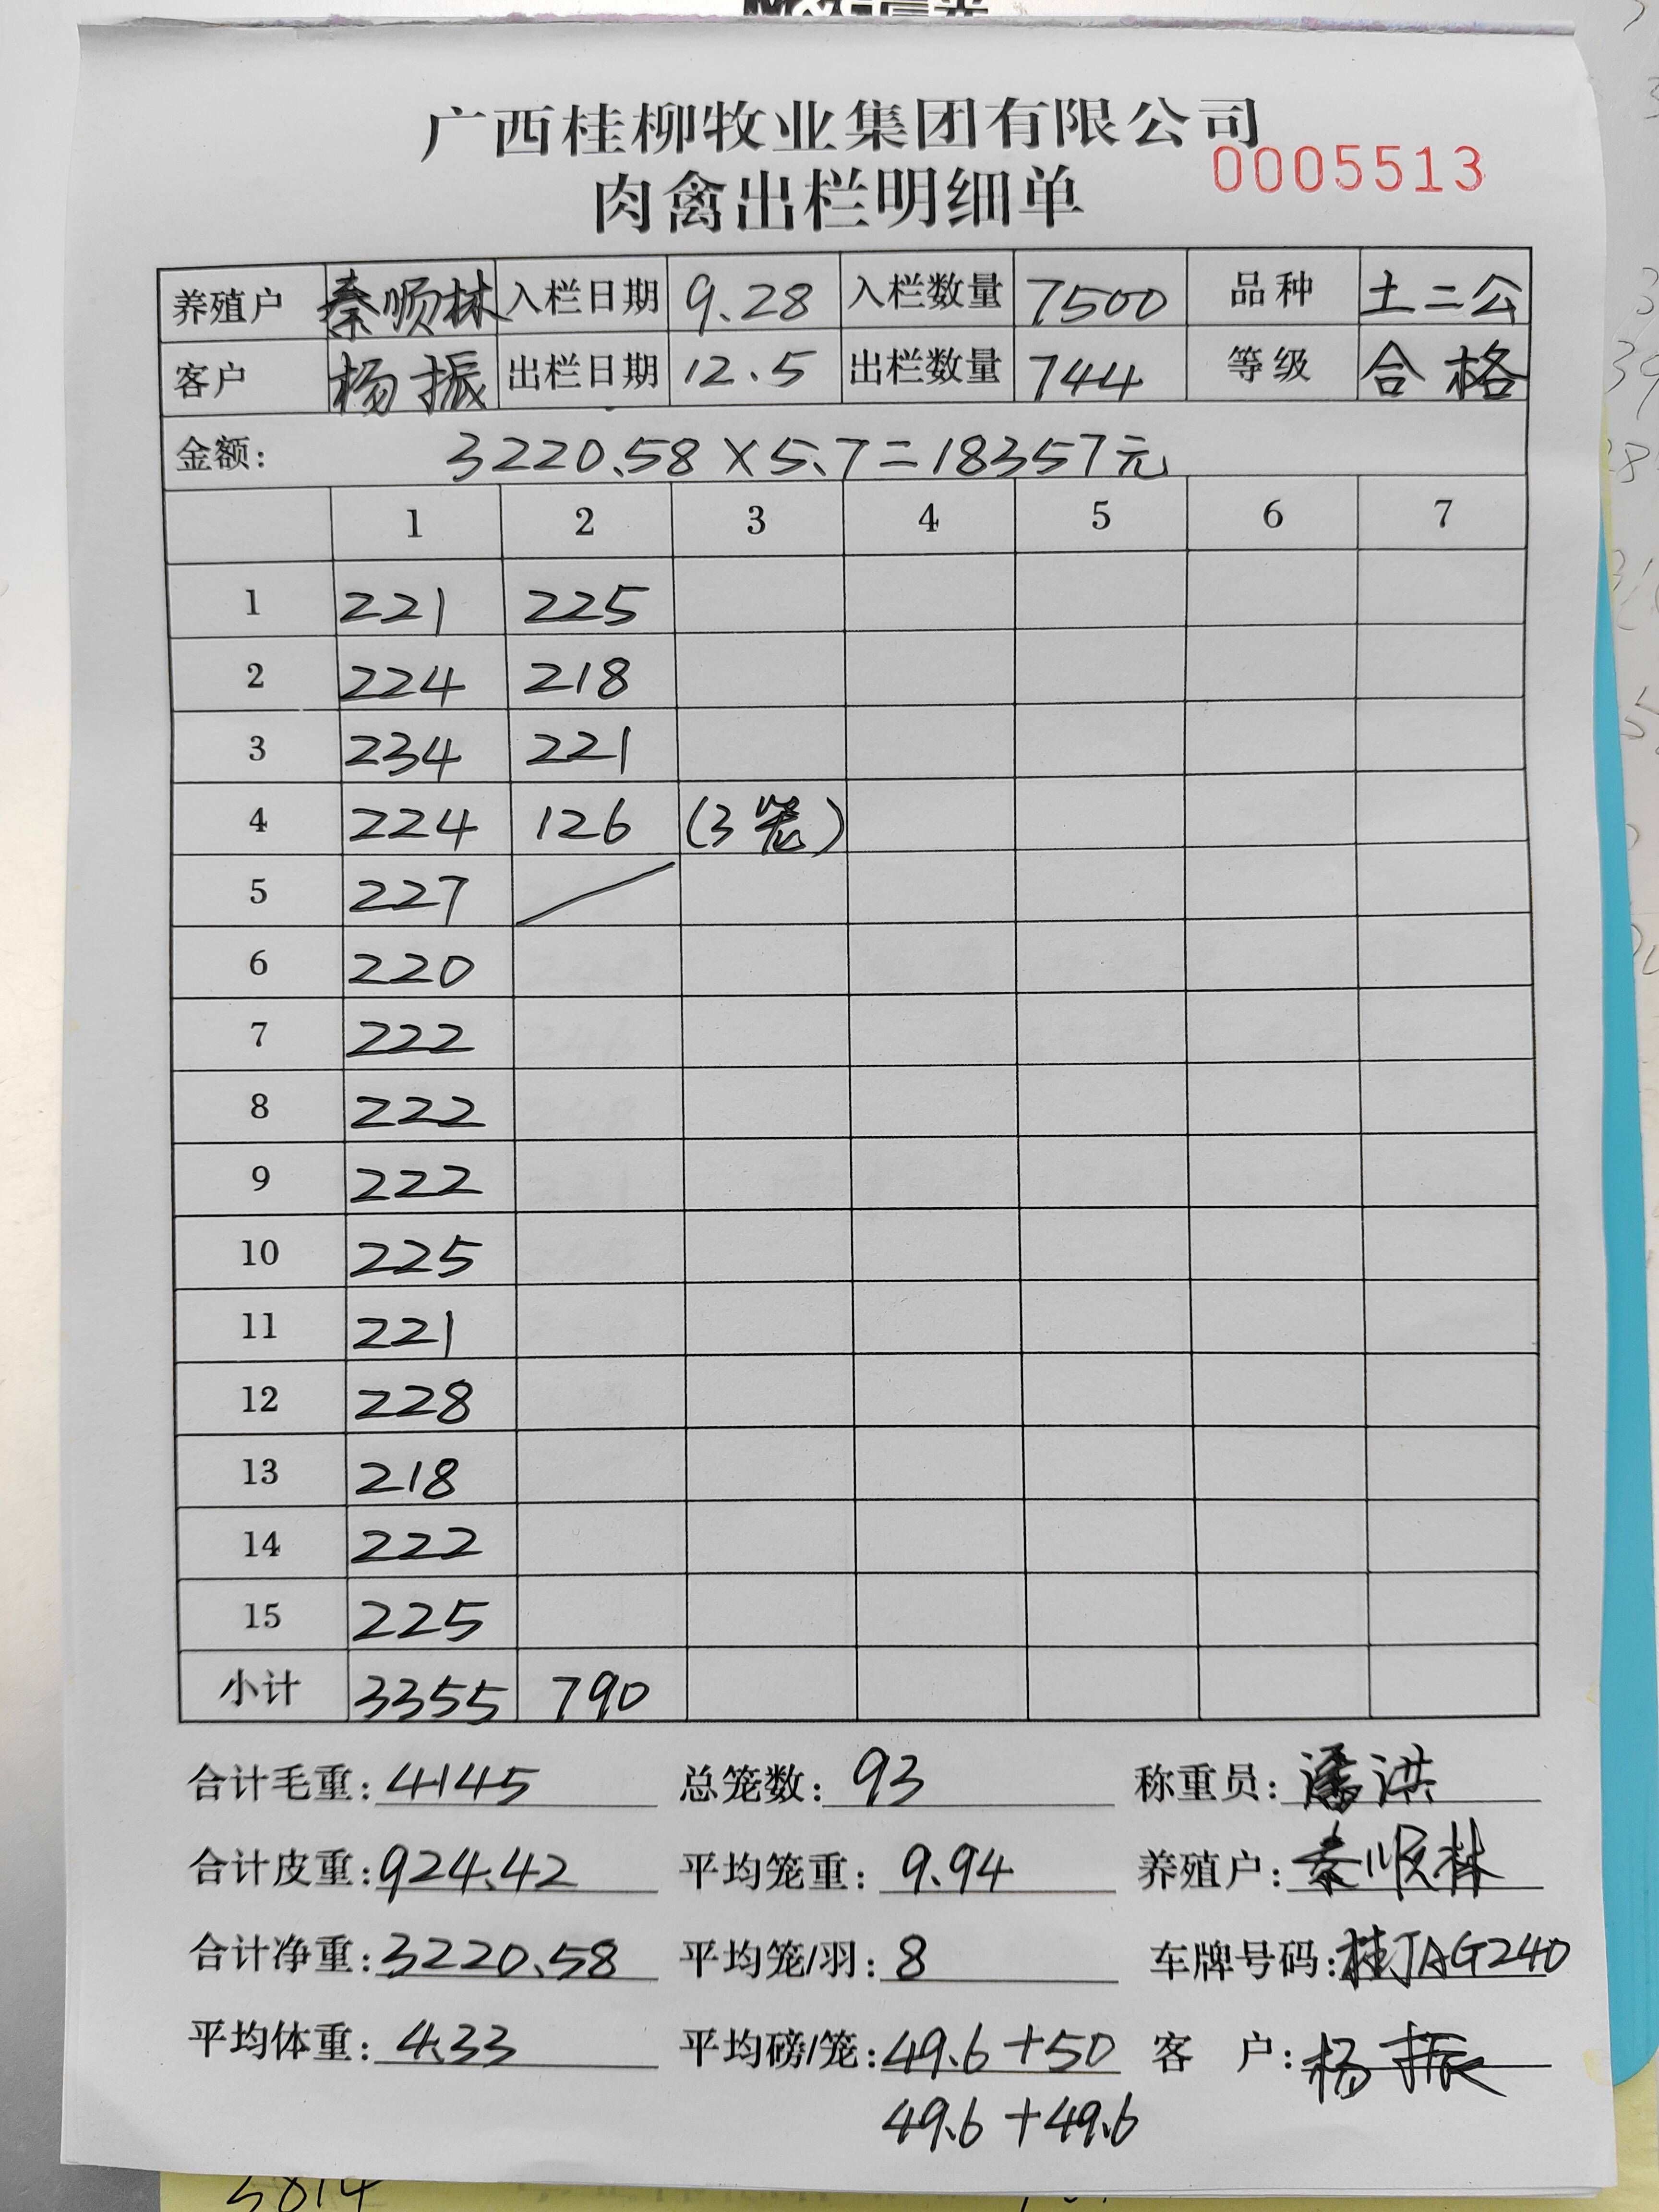 广西桂柳牧业集团有限公司
0005513
肉禽出栏明细单
养殖户 秦顺林 入栏日期 9.28 入栏数量 7500 品种 土二公
客户 杨振 出栏日期 12.5 出栏数量 744 等级 合格
金额: 3220.58×5.7=18357元
1 2 3 4 5 6 7
1 221 225
2 224 218
3 234 221
4 224 126 (3笼)
5 227
6 220
7 222
8 222
9 222
10 225
11 221
12 228
13 218
14 222
15 225
小计 3355 790
合计毛重: 4145 总笼数: 93 称重员: 潘洪
合计皮重: 924.42 平均笼重: 9.94 养殖户: 秦顺林
合计净重: 3220.58 平均笼/羽: 8 车牌号码: 桂JAG240
平均体重: 4.33 平均磅/笼: 49.6+50 客 户: 杨振
49.6+49.6
5814